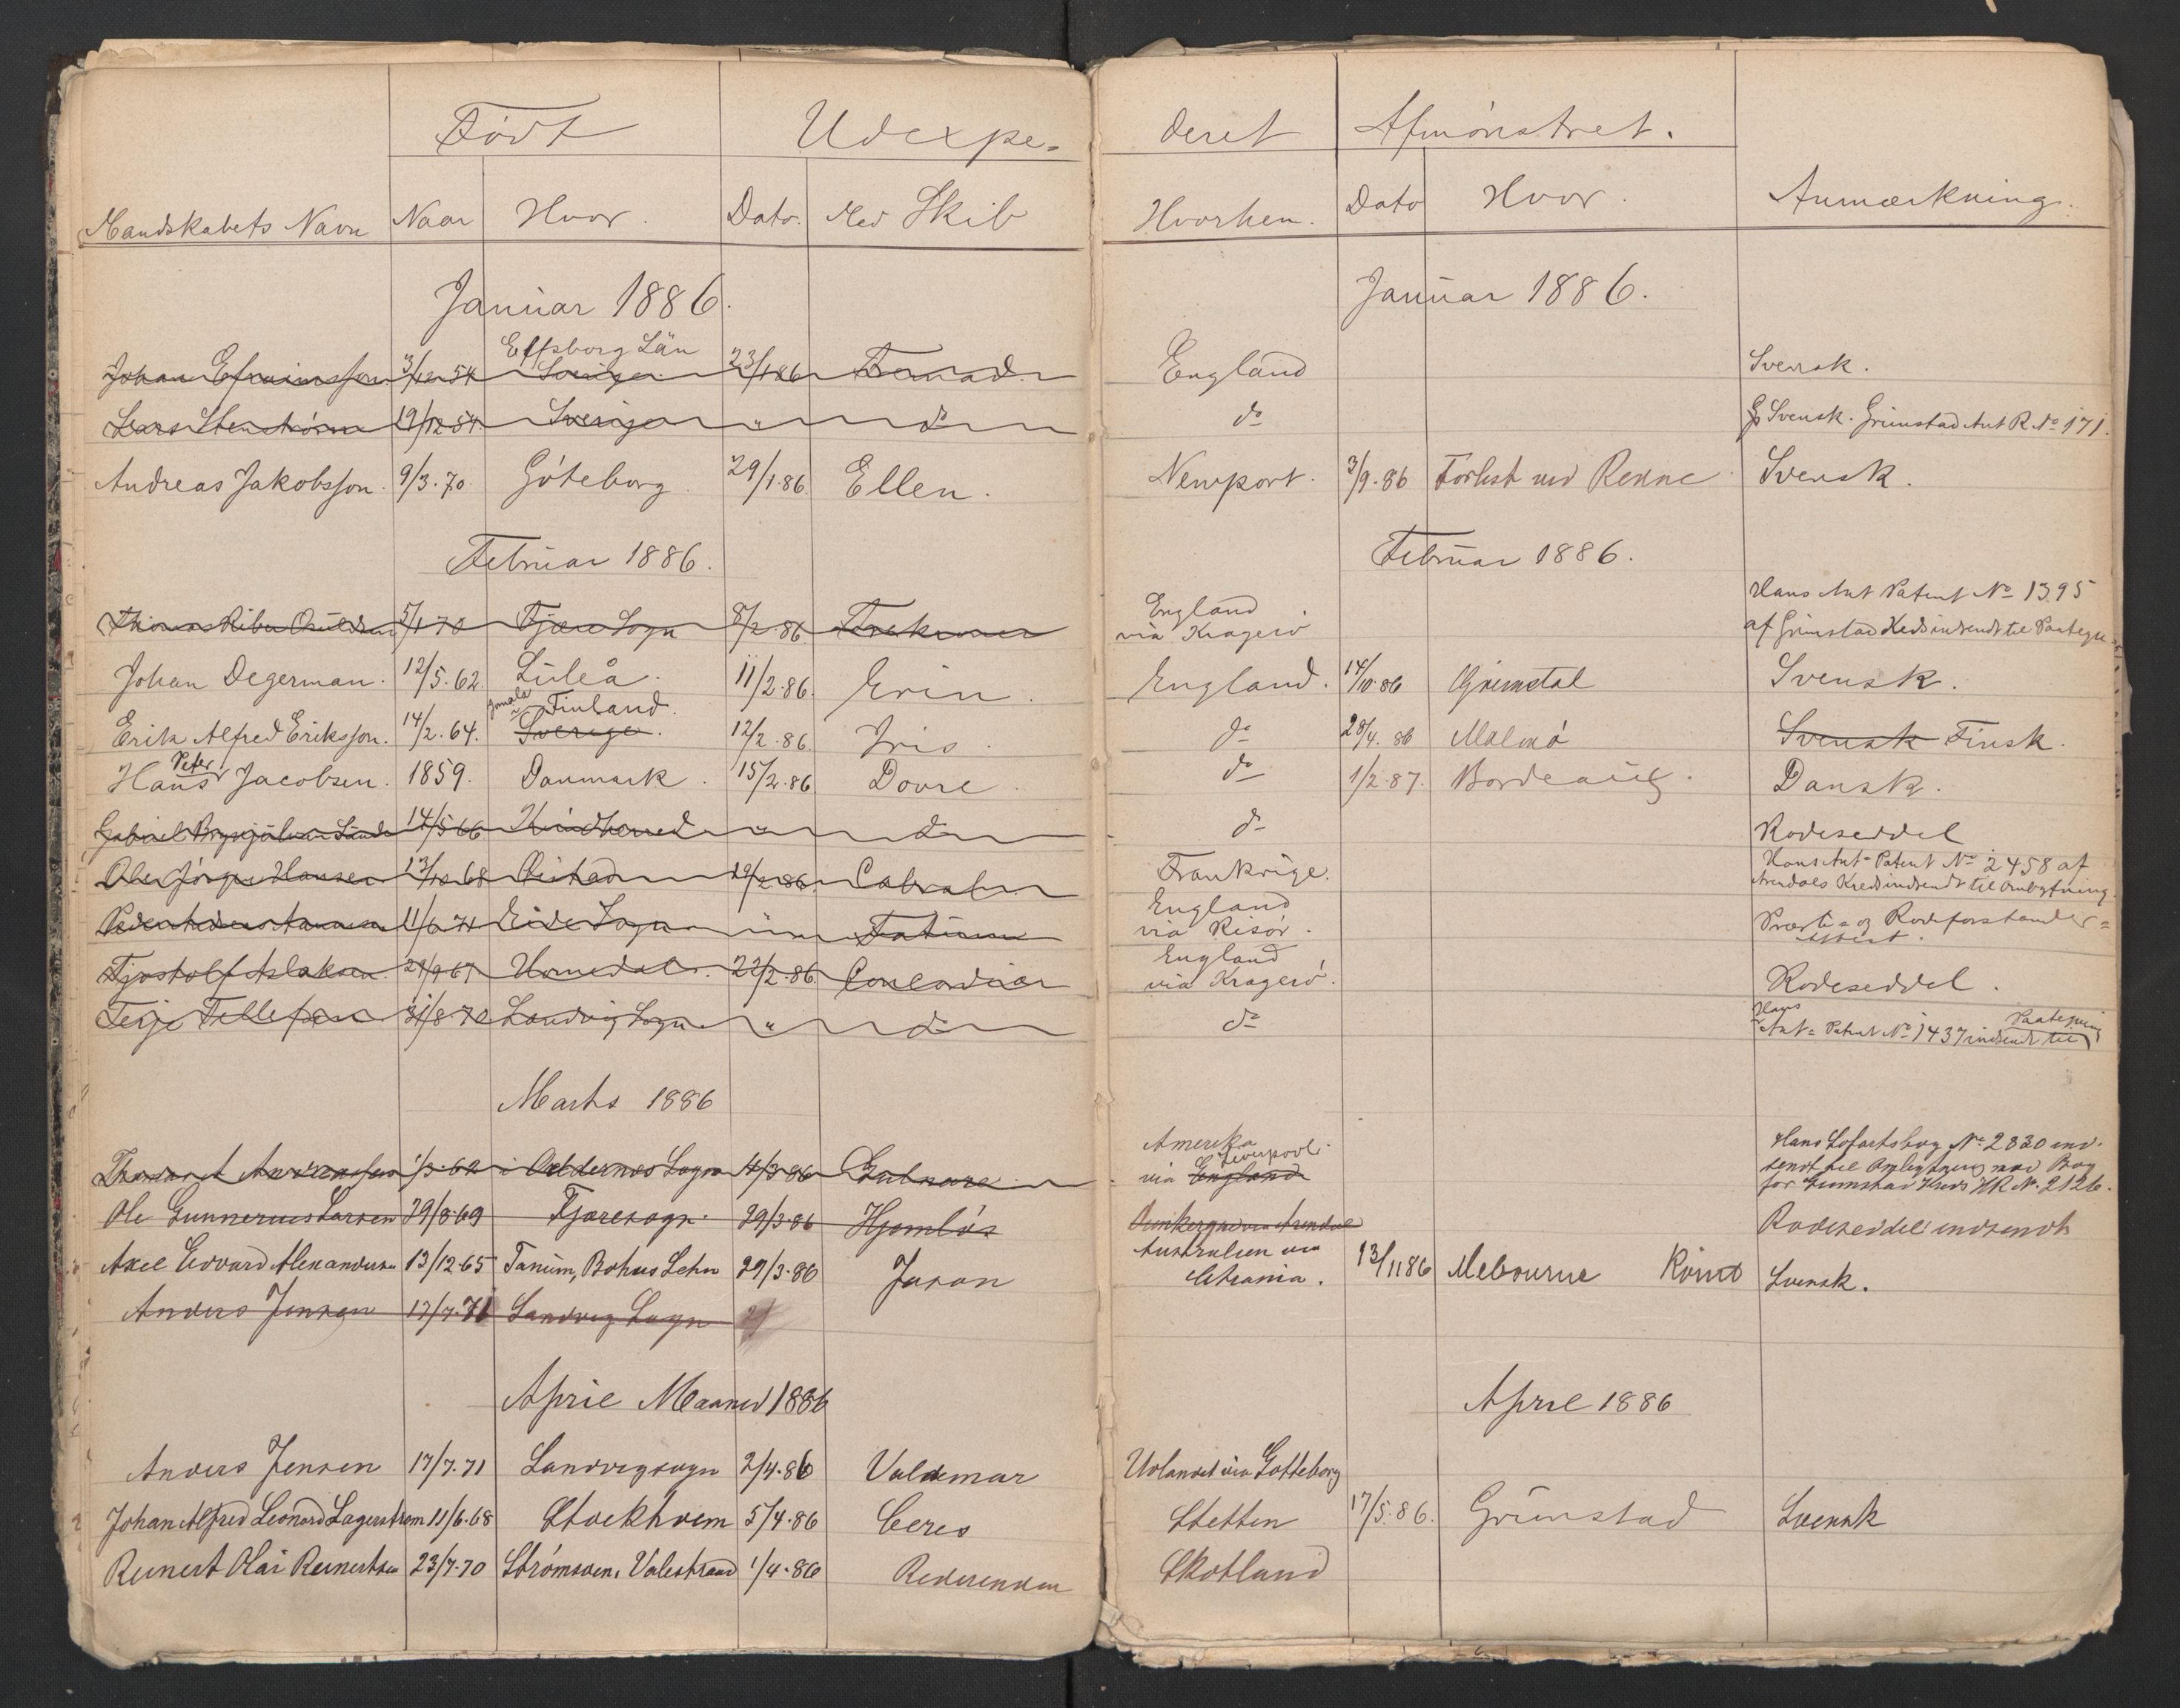 Født Udexpe=
Mandskabets Navn Naar Hvor. Dato. Med Skib
Januar 1886.
Elfsborg Län
Johan Efraimsson 3/12 54 Sverige 23/1 86
Lars Stenstrøm 19/12 54 Sverige " do
Andreas Jakobsson. 9/3.70. Göteborg. 29/1.86. Ellen.
Februar 1886.
Thomas Riber 5/1 70 Fjære Sogn 8/2.86
Johan Degerman. 12/5.62. Luleå. 11/2.86. Erin.
Jomala Finland.
Erik Alfred Eriksson. 14/2.64. Sverige. 12/2.86. Iris.
Peter
Hans Jacobsen. 1859. Danmark. 15/2.86 Dovre.
Gabriel 14/5 66 " do
Ole Jørgen Hansen 13/10 68 19/2 86. Cabral
11/6 71 Eide Sogn
Tjostolf Aslaksen. 29/9 67 Homedal. 22/2.86. Concordia
Terje Tellefsen 31/8.70 Landvig Sogn " do
Marts 1886
Thomas A Andreassen 1/3.62 Oddernes Sogn 4/3 86 Gulnare
Ole Gunnerius Larsen 29/8.69 Fjæresogn 29/3.86 Hjemløs
Axel Edvard Alexandersen 13/12.65 Tanum, Bohus Lehn 29/3.86 Jason
Anders Jensen 17/7.71 Landvig Sogn 2/
April Maaned 1886
Anders Jensen 17/7.71 Landvigsogn 2/4.86 Valdemar
Johan Alfred Leonard Lagerstrøm 11/6.68 Stockholm 5/4.86 Ceres
Reinert Olai Reinertsen 23/7.70 Strømsven, Valestrand 1/4.86
deret Afmønstret.
Hvorhen. Dato Hvor. Anmærkning.
Januar 1886.
England Svensk.
do Svensk. Grimstad Ant R. No 171.
Newport. 3/9.86 Forlist ved Rekne Svensk.
Februar 1886.
England Hans Ant Patent No 1395
via Kragerø af Grimstad Kreds indsendt til Paategn=
England. 14/10.86 Grimstad Svensk.
do 28/4.86 Malmø Svensk Finsk.
do 1/2.87. Bordeaux. Dansk.
do Rodeseddel
Frankrige. Hans Ant= Patent No 2458 af
Arendals Kreds indsendt til Ombytning.
England
via Risør. Præste= og Rodeforstander=
Attest.
England
via Kragerø. Rodeseddel.
do Hans Ant= Patent No 1437 indsendt til Paategning
Amerika
via England Liverpool. Hans Søfartsbog No 2830 ind-
sendt til Ombytning med Bog
for Grimstad Kreds HR No. 2126.
Dunkerque via Arendal Rodeseddel indsendt
Australien via
Chrania. 13/11 86 Melbourne Rømt Svensk.
April 1886
Udlandet via Gotteborg
Stettin 17/5.86. Grimstad Svensk
Skotland